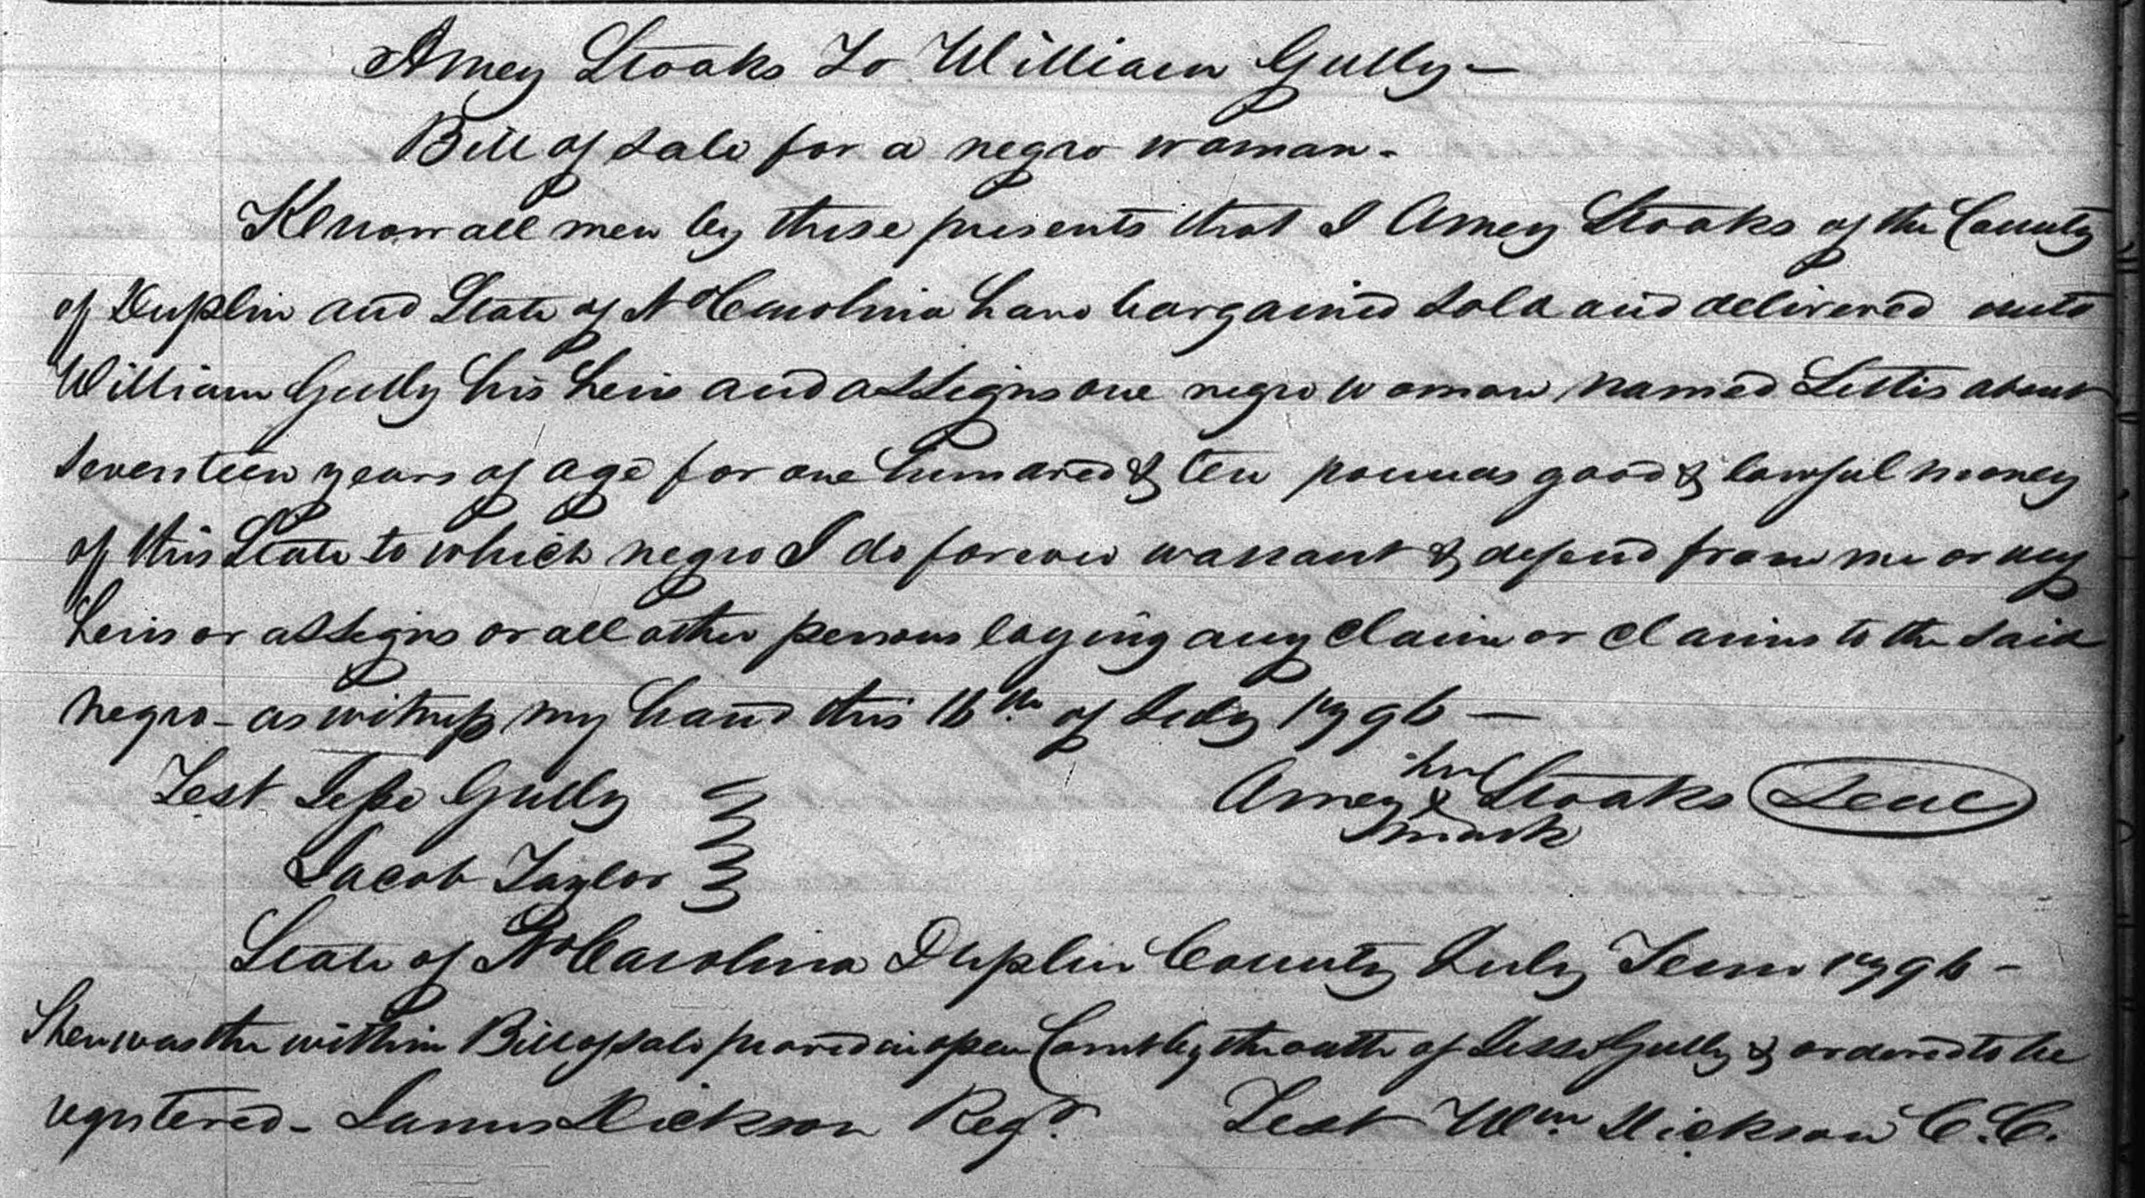 Amey Stoaks To William Gully —
Bill of Sale for a negro woman -
Know all men by these presents that I Amey Stoaks of the County
of Duplin and State of No Carolina have bargained sold and delivered unto
William Gully his heirs and assigns one negro woman named Lettis about
seventeen years of age for one hundred & ten pounds good & lawful money
of this State to which negro I do forever warrant & defend from me or my
heirs or assigns or all other persons laying any claim or claims to the said
negro - as witness my hand this 16th of July 1796 —
Test Jesse Gully
Amey her x mark Stoaks Seal
Jacob Taylor
State of No Carolina Duplin County July Term 1796 -
Then was the within Bill of Sale proved in open Court by the oath of Jesse Gully & ordered to be
registered - James Dickson Regr. Test Wm. Dickson C.C.